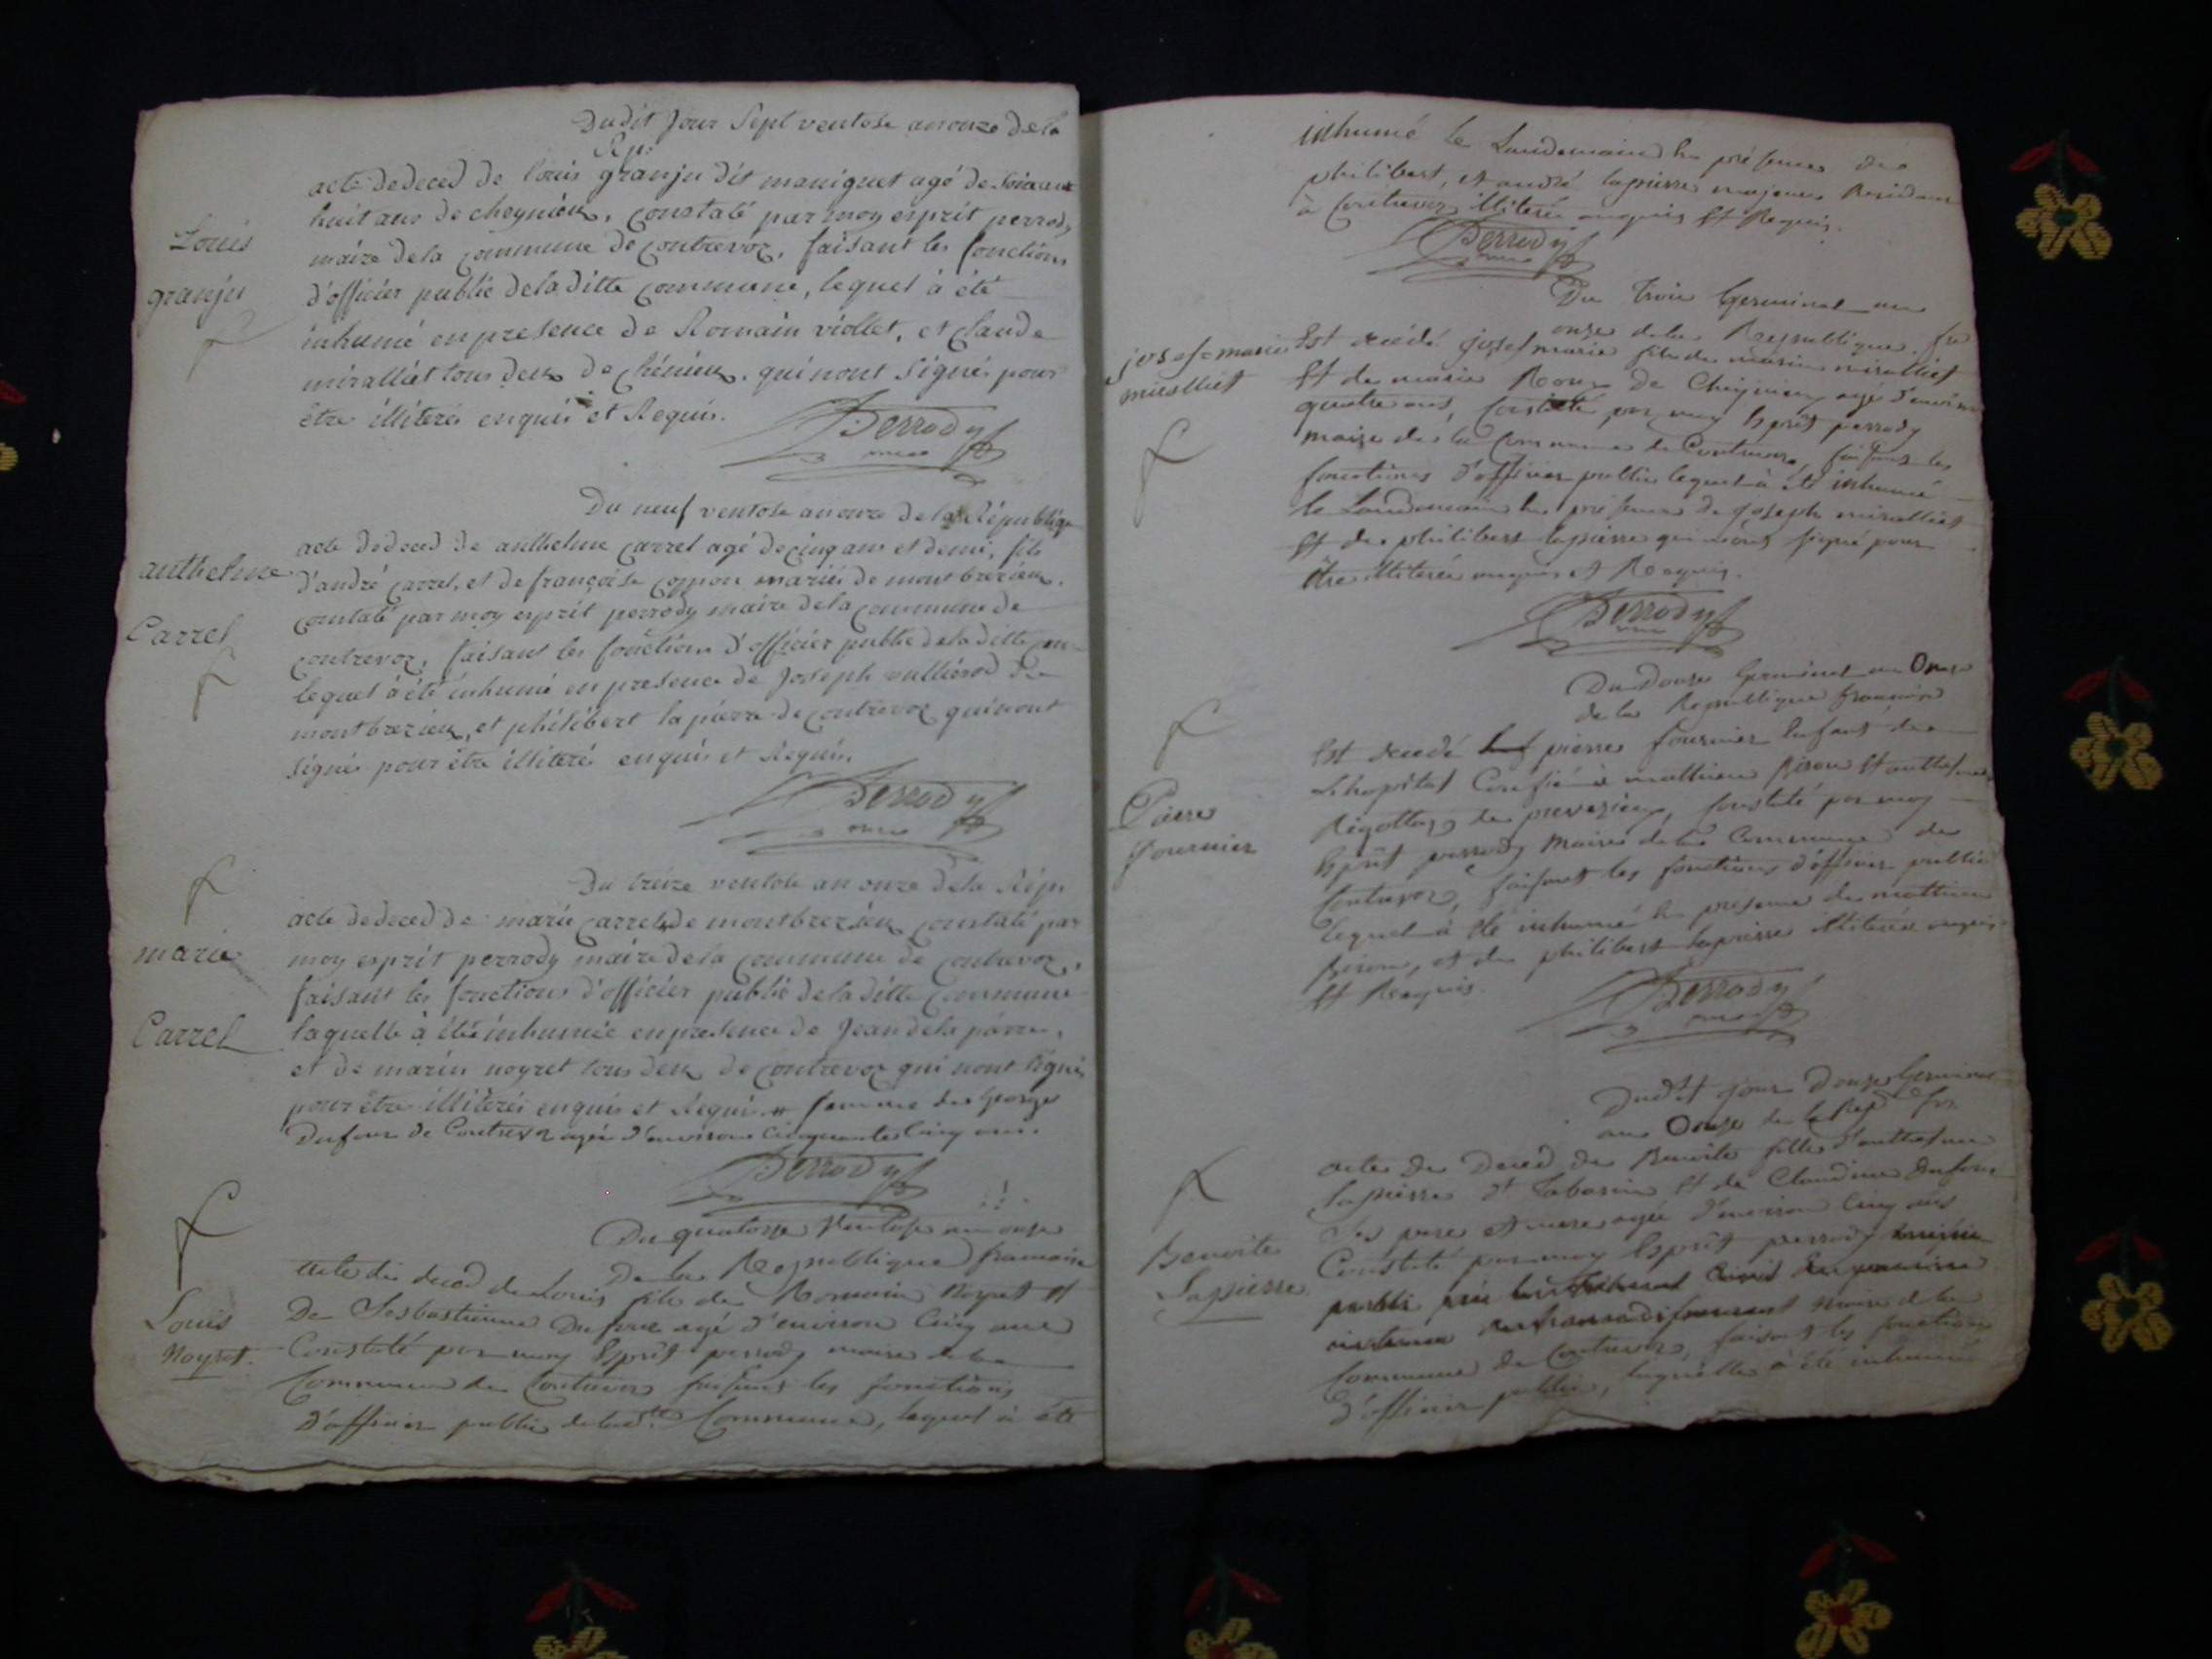 Dudit Jour Sept ventose an onze de la
Rep:
Louis
granju
acte de deced de louis granju dit maniquet agé de soixante
huit ans de cheynieu, constaté par moy esprit perrody
maire de la commune de contrevoz, faisant les fonctions
d'officier public de la ditte commune, lequel à été
inhumé en presence de Romain viollet, et Claude
miralliet tous deux de chénieu, qui nont signés pour
être illiterés enquis et Requis.
Perrody
Du neuf ventose an onze de la République
anthelme
Carrel
acte de deced de anthelme carrel agé de cinq ans et demi, fils
d'andré carrel, et de françoise mariés de montbrezieu,
constaté par moy esprit perrody maire de la commune de
contrevoz, faisant les fonctions d'officier public de la ditte com=
lequel à été inhumé en presence de Joseph vullierod de
montbrezieu, et philibert lapierre de contrevoz qui nont
signés pour être illiterés enquis et Requis.
Perrody
Du treize ventose an onze de la Repu
marie
Carrel
acte de deced de marie carrel de montbrezieu constaté par
moy esprit perrody maire de la commune de contrevoz,
faisant les fonctions d'officier public de la ditte commune
laquelle à étée inhumée en presence de Jean dela pierre,
et de marin noyret tous deux de contrevoz qui nont signés
pour être illiterés enquis et Requis # femme de George
Dufour de Contrevoz agée d'environ cinquante cinq ans.
Perrody
Du quatorze Ventose an onze
De la Republique francaise
Louis
Noyret.
acte de deced de Louis fils de Romain Noyret et
De Sesbastienne Dufour agé d'environ Cinq ans
Constaté par moy Esprit perrody maire de la
Commune de Contrevoz faisant les fonctions
D'officier public de lad.te Commune, lequel à été
inhumé le Landemain En présence de
philibert, et andré lapierre majeurs Residant
à Contrevoz illiterés enquis Et Requis.
Perrody
Du trois Germinal an
onze de la Republique fre
josef=marie
miralliet
Est decedé josef marie fils de marin miralliet
Et de marie Roux De Cheynieu agé d'environ
quatre ans, Constaté par moy Esprit perrody
maire de la Commune de Contrevoz, faisant les
fonctions d'officier public lequel à été inhumé
le Landemain En présence De joseph miralliet
Et de philibert lapierre qui n'ont signé pour
être illiterés enquis et Requis.
Perrody
Du Douze Germinal an Onze
de la Republique francaise
Pierre
fournier
Est decedé pierre fournier Enfant de
L'hopital Confié à mathieu Et anthelmette
de prevezieu, Constaté par moy
Esprit perrody Maire de la Commune de
Contrevoz, faisant les fonctions d'officier public
lequel à été inhumé En presence de mathieu
et de philibert lapierre illiterés enquis
Et Requis.
Perrody
Dudit jour Douze Germinal
an Onze de la Rep. fr.
Benoite
Lapierre
acte De Deced De Benoite fille d'anthelme
lapierre dt Et de Claudine Dufour
Ses pere et mere agée d'environ Cinq ans
Constaté par moy Esprit perrody
maire de la
Commune de Contrevoz, faisant les fonctions
d'officier public, laquelle à été inhumée